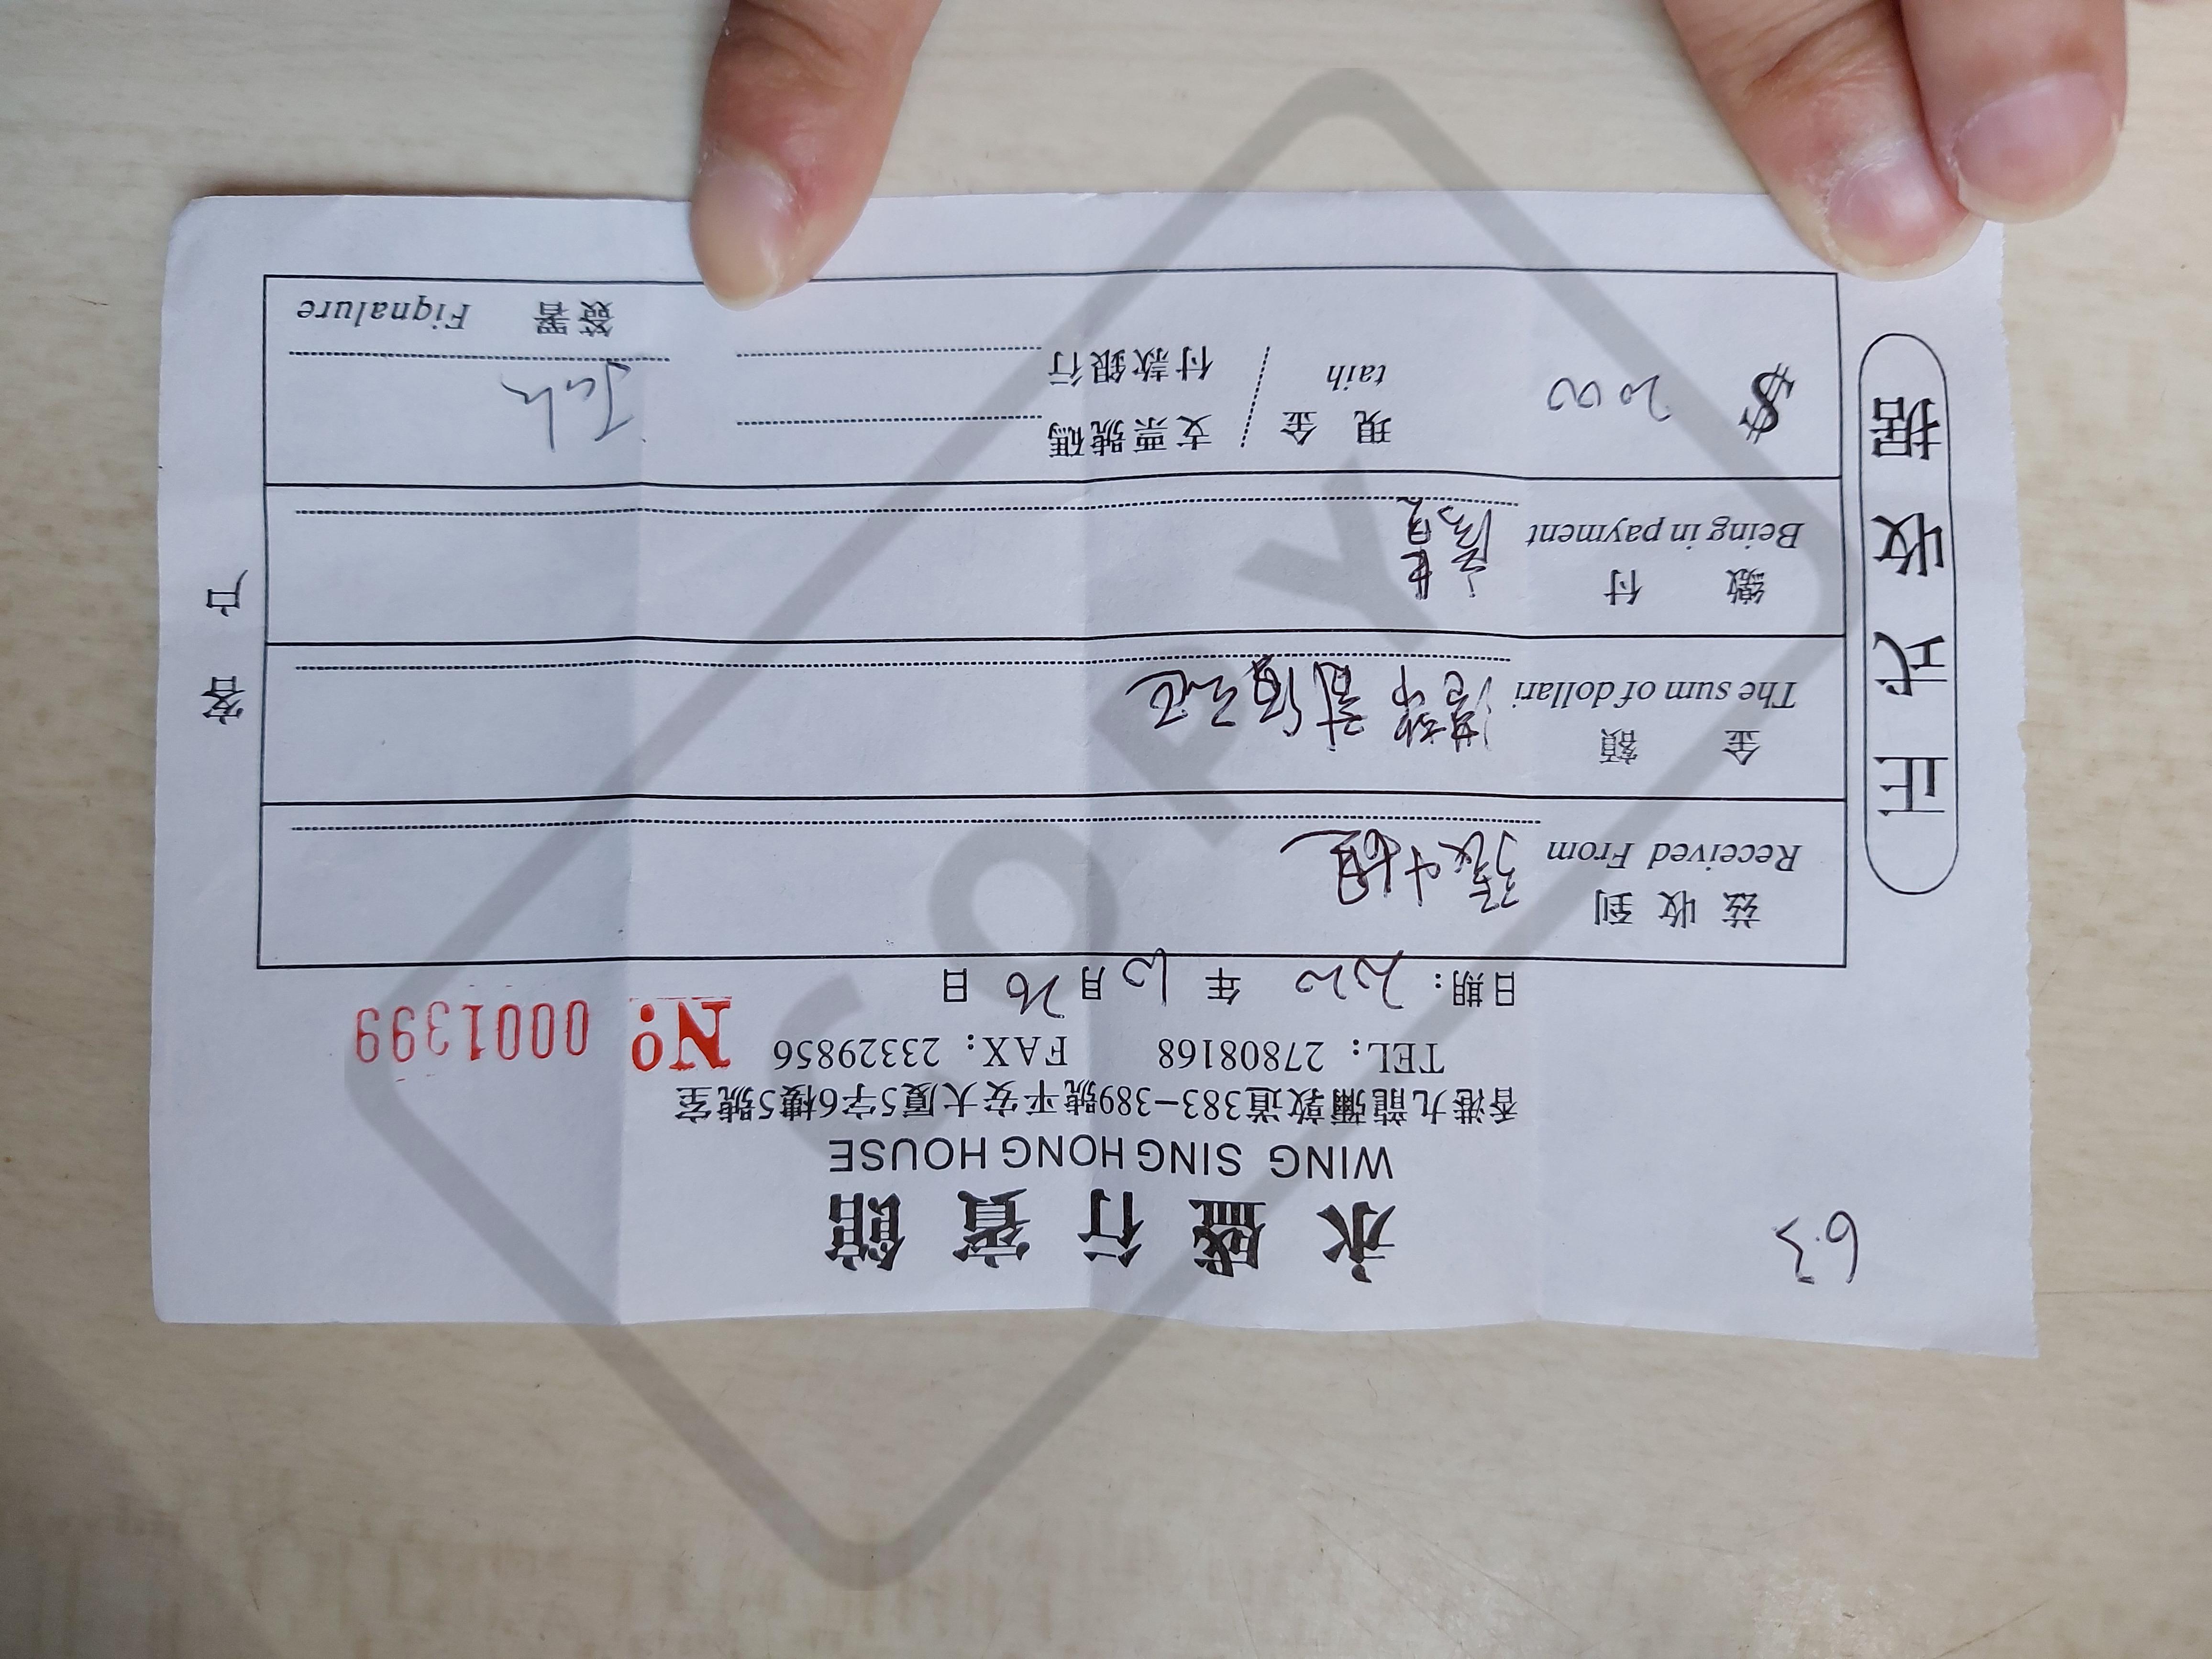 63
永盛行賓館
WING SING HONG HOUSE
香港九龍彌敦道383-389號平安大厦5字6樓5號室
TEL: 27808168 FAX: 23329856 No: 0001399
日期: 2020 年 10 月 26 日
正式收据
兹收到 張小姐
Received From
金額 港幣
The sum of dollari
繳付
Being in payment
$ 2000 現金 / 支票號碼
taih 付款銀行
簽署 Fignalure
客户
COPY